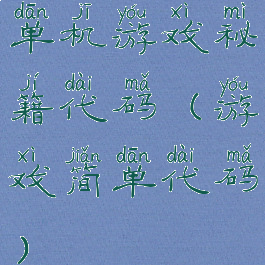 dān jī yóu xì mì
单机游戏秘
jí dài mǎ yóu
籍代码（游
xì jiǎn dān dài mǎ
戏简单代码
）